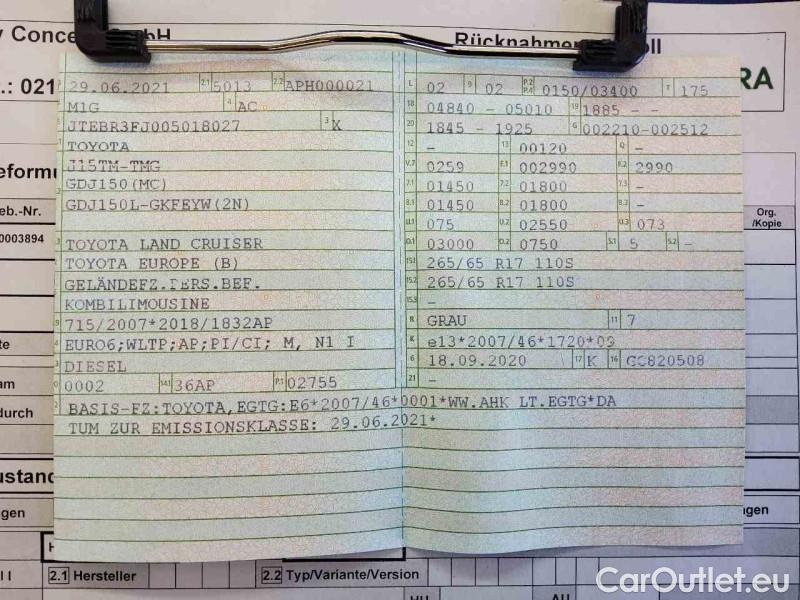 Rücknahmen
.: 021
RA
29.06.2021 2.1 5013 2.2 APH000021
M1G 4 AC
JTEBR3FJ005018027 3 K
TOYOTA
J15TM-TMG
GDJ150(MC)
GDJ150L-GKFEYW(2N)
TOYOTA LAND CRUISER
TOYOTA EUROPE (B)
GELÄNDEFZ.PERS.BEF.
KOMBILIMOUSINE
715/2007*2018/1832AP
EURO6;WLTP;AP;PI/CI; M, N1 I
DIESEL
0002 14.1 36AP P.1 02755
BASIS-FZ:TOYOTA,EGTG:E6*2007/46*0001*WW.AHK LT.EGTG*DA
TUM ZUR EMISSIONSKLASSE: 29.06.2021*
L 02 9 02 P.2 P.4 0150/03400 T 175
18 04840 - 05010 19 1885 - -
20 1845 - 1925 G 002210-002512
12 - 13 00120 Q -
V.7 0259 F.1 002990 F.2 2990
7.1 01450 7.2 01800 7.3 -
8.1 01450 8.2 01800 8.3 -
U.1 075 U.2 02550 U.3 073
O.1 03000 O.2 0750 S.1 5 S.2 -
15.1 265/65 R17 110S
15.2 265/65 R17 110S
15.3 -
R GRAU 11 7
K e13*2007/46*1720*09
6 18.09.2020 17 K 16 GC820508
21 -
eb.-Nr.
0003894
Org.
/Kopie
te
am
durch
ustand
ngen
ngen
2.1 Hersteller 2.2 Typ/Variante/Version
HU AU
CarOutlet.eu